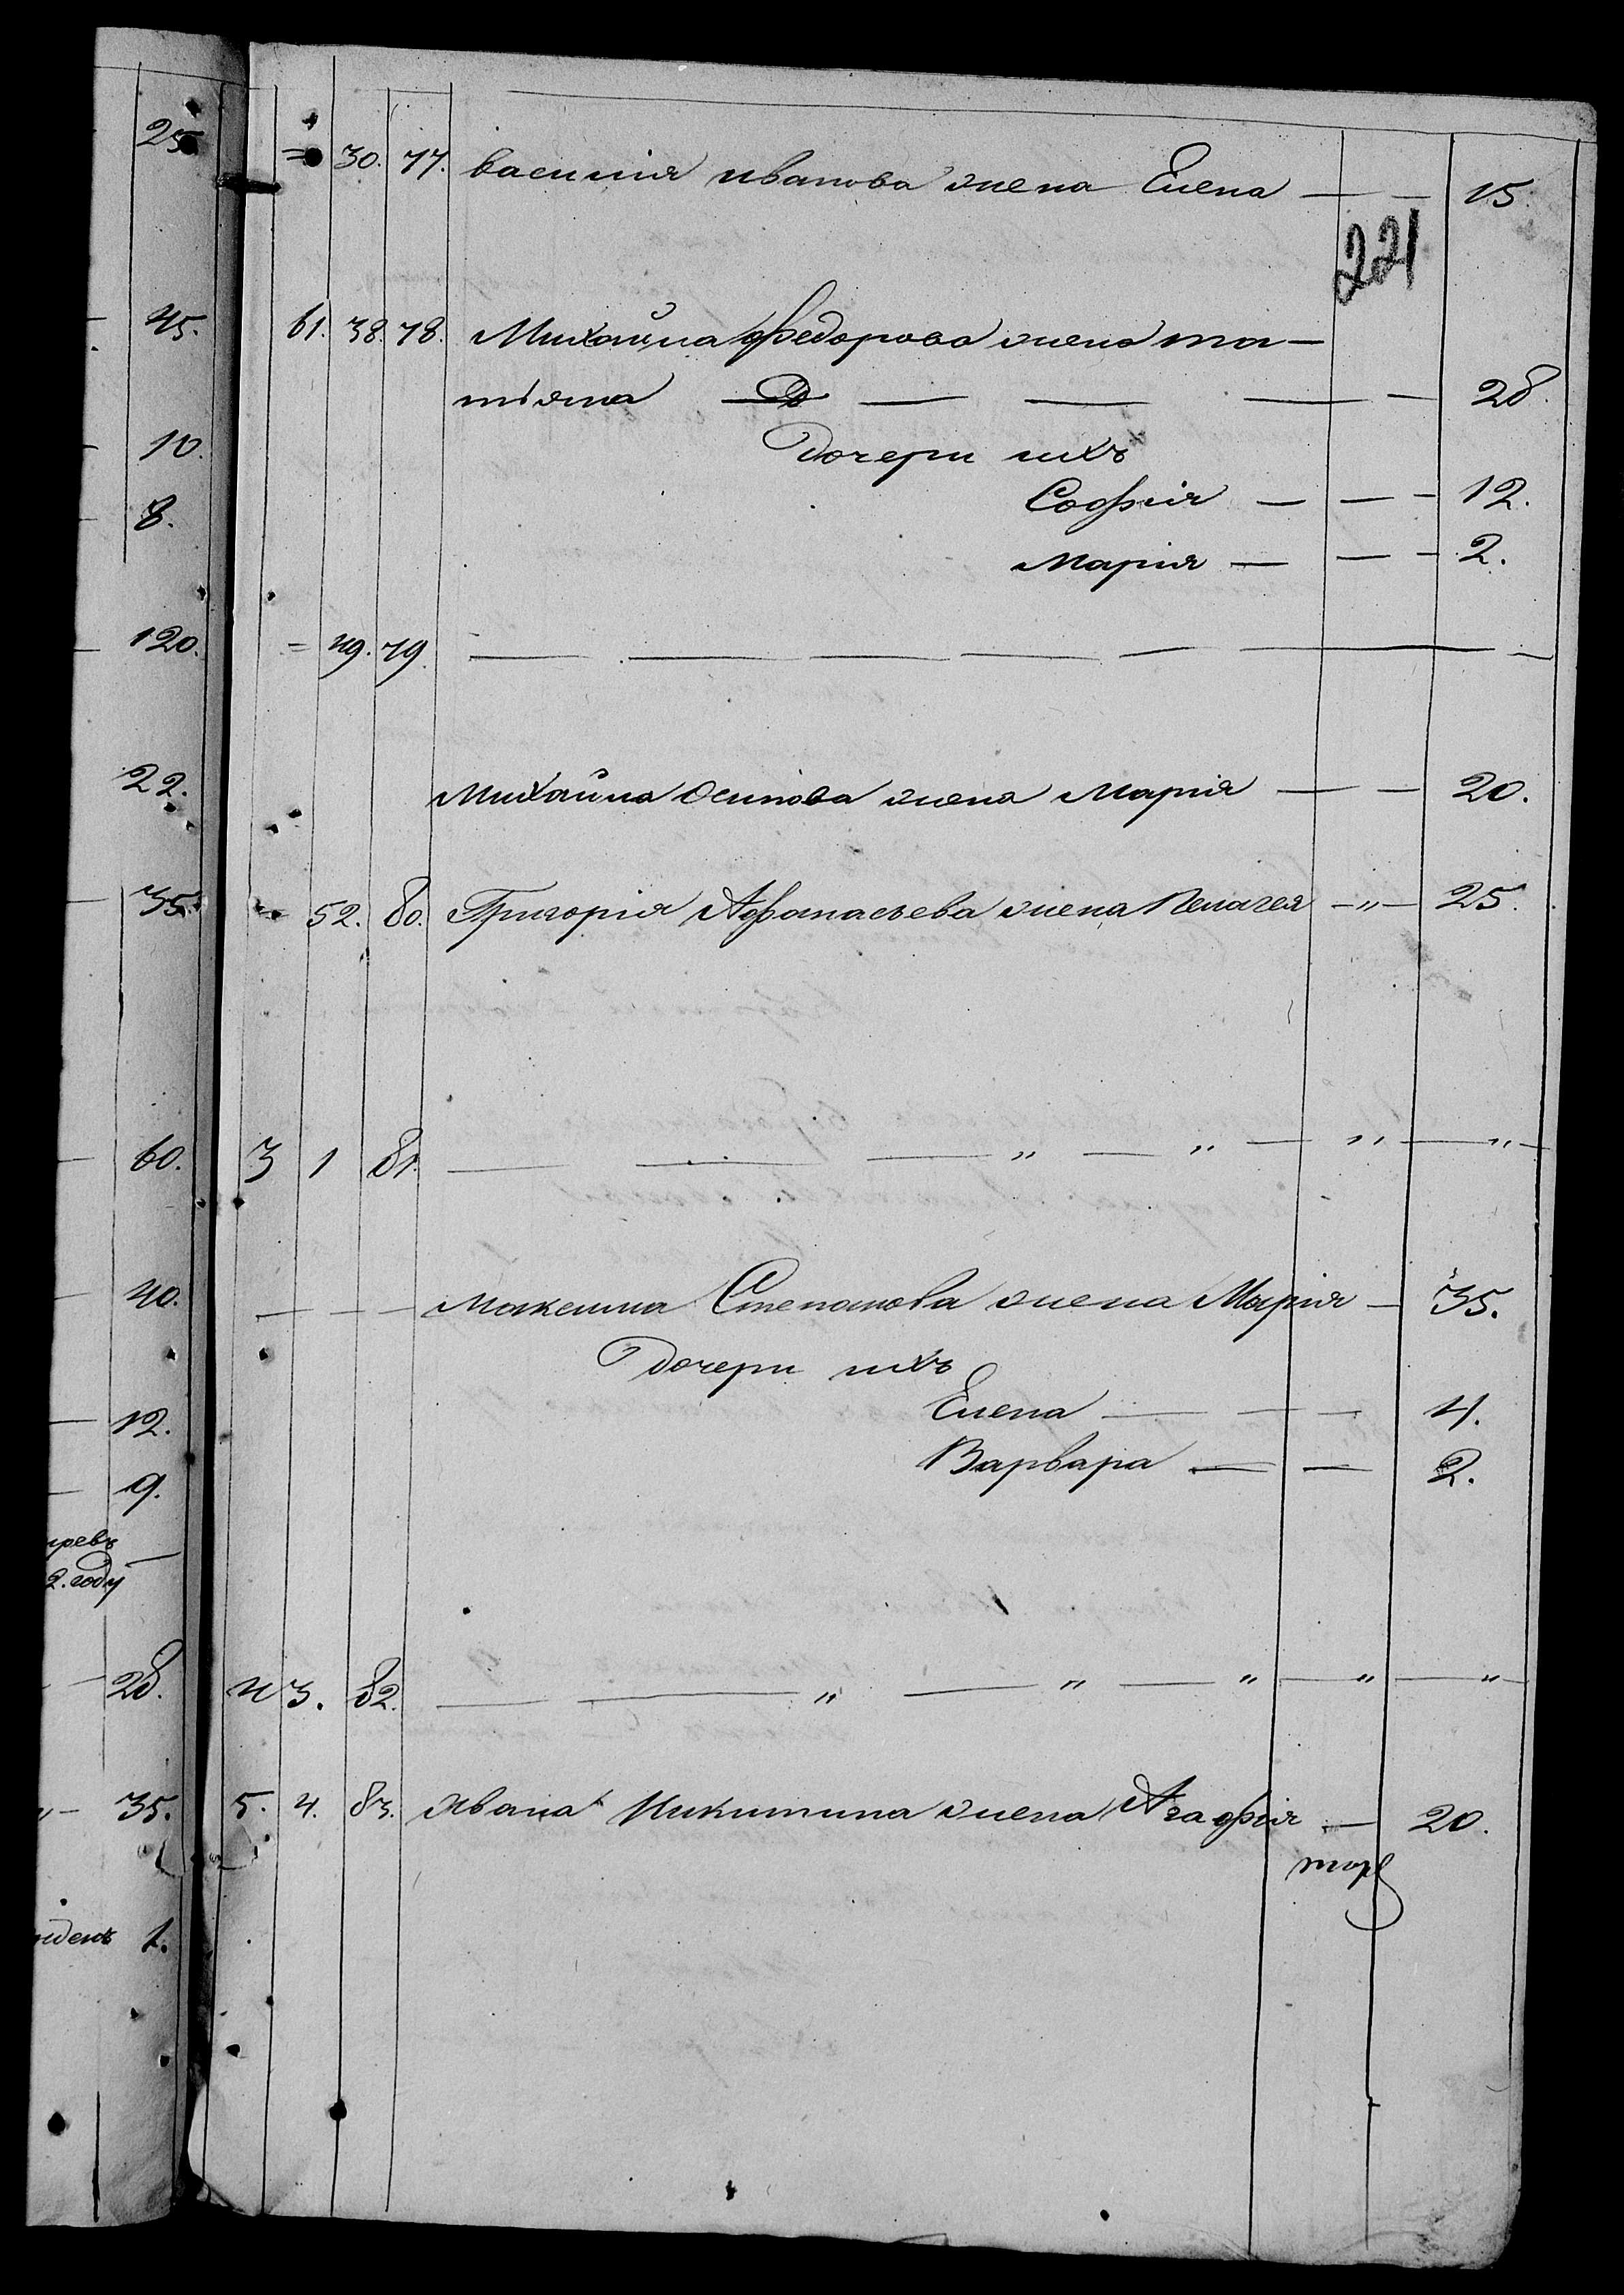 25
= 30. 77. василия иванова жена Елена — — 15.
221
45. 61. 38. 78. Михайла федорова жена та-
тіяна — — — — — 28.
10. Дочери ихъ
8. Софія — — - 12.
Марія — — - 2.
120. = 49. 79. — — — — — — —
22. Михайла осипова жена Марія — — 20.
35. = 52. 80. Григорія Афанасьева жена Пелагея — „ — 25.
60. 3 1 81. — — — „ — „ — „ — „ —
40. — — — Максима Степанова жена Марія — 35.
Дочери ихъ
12. Елена — — — 4.
9. Варвара — — 2.
2. году
28. 4 3. 82. — — „ — „ — „ — „ — „
35. 5. 4. 83. Ивана Никитина жена Агафія — 20.
1.